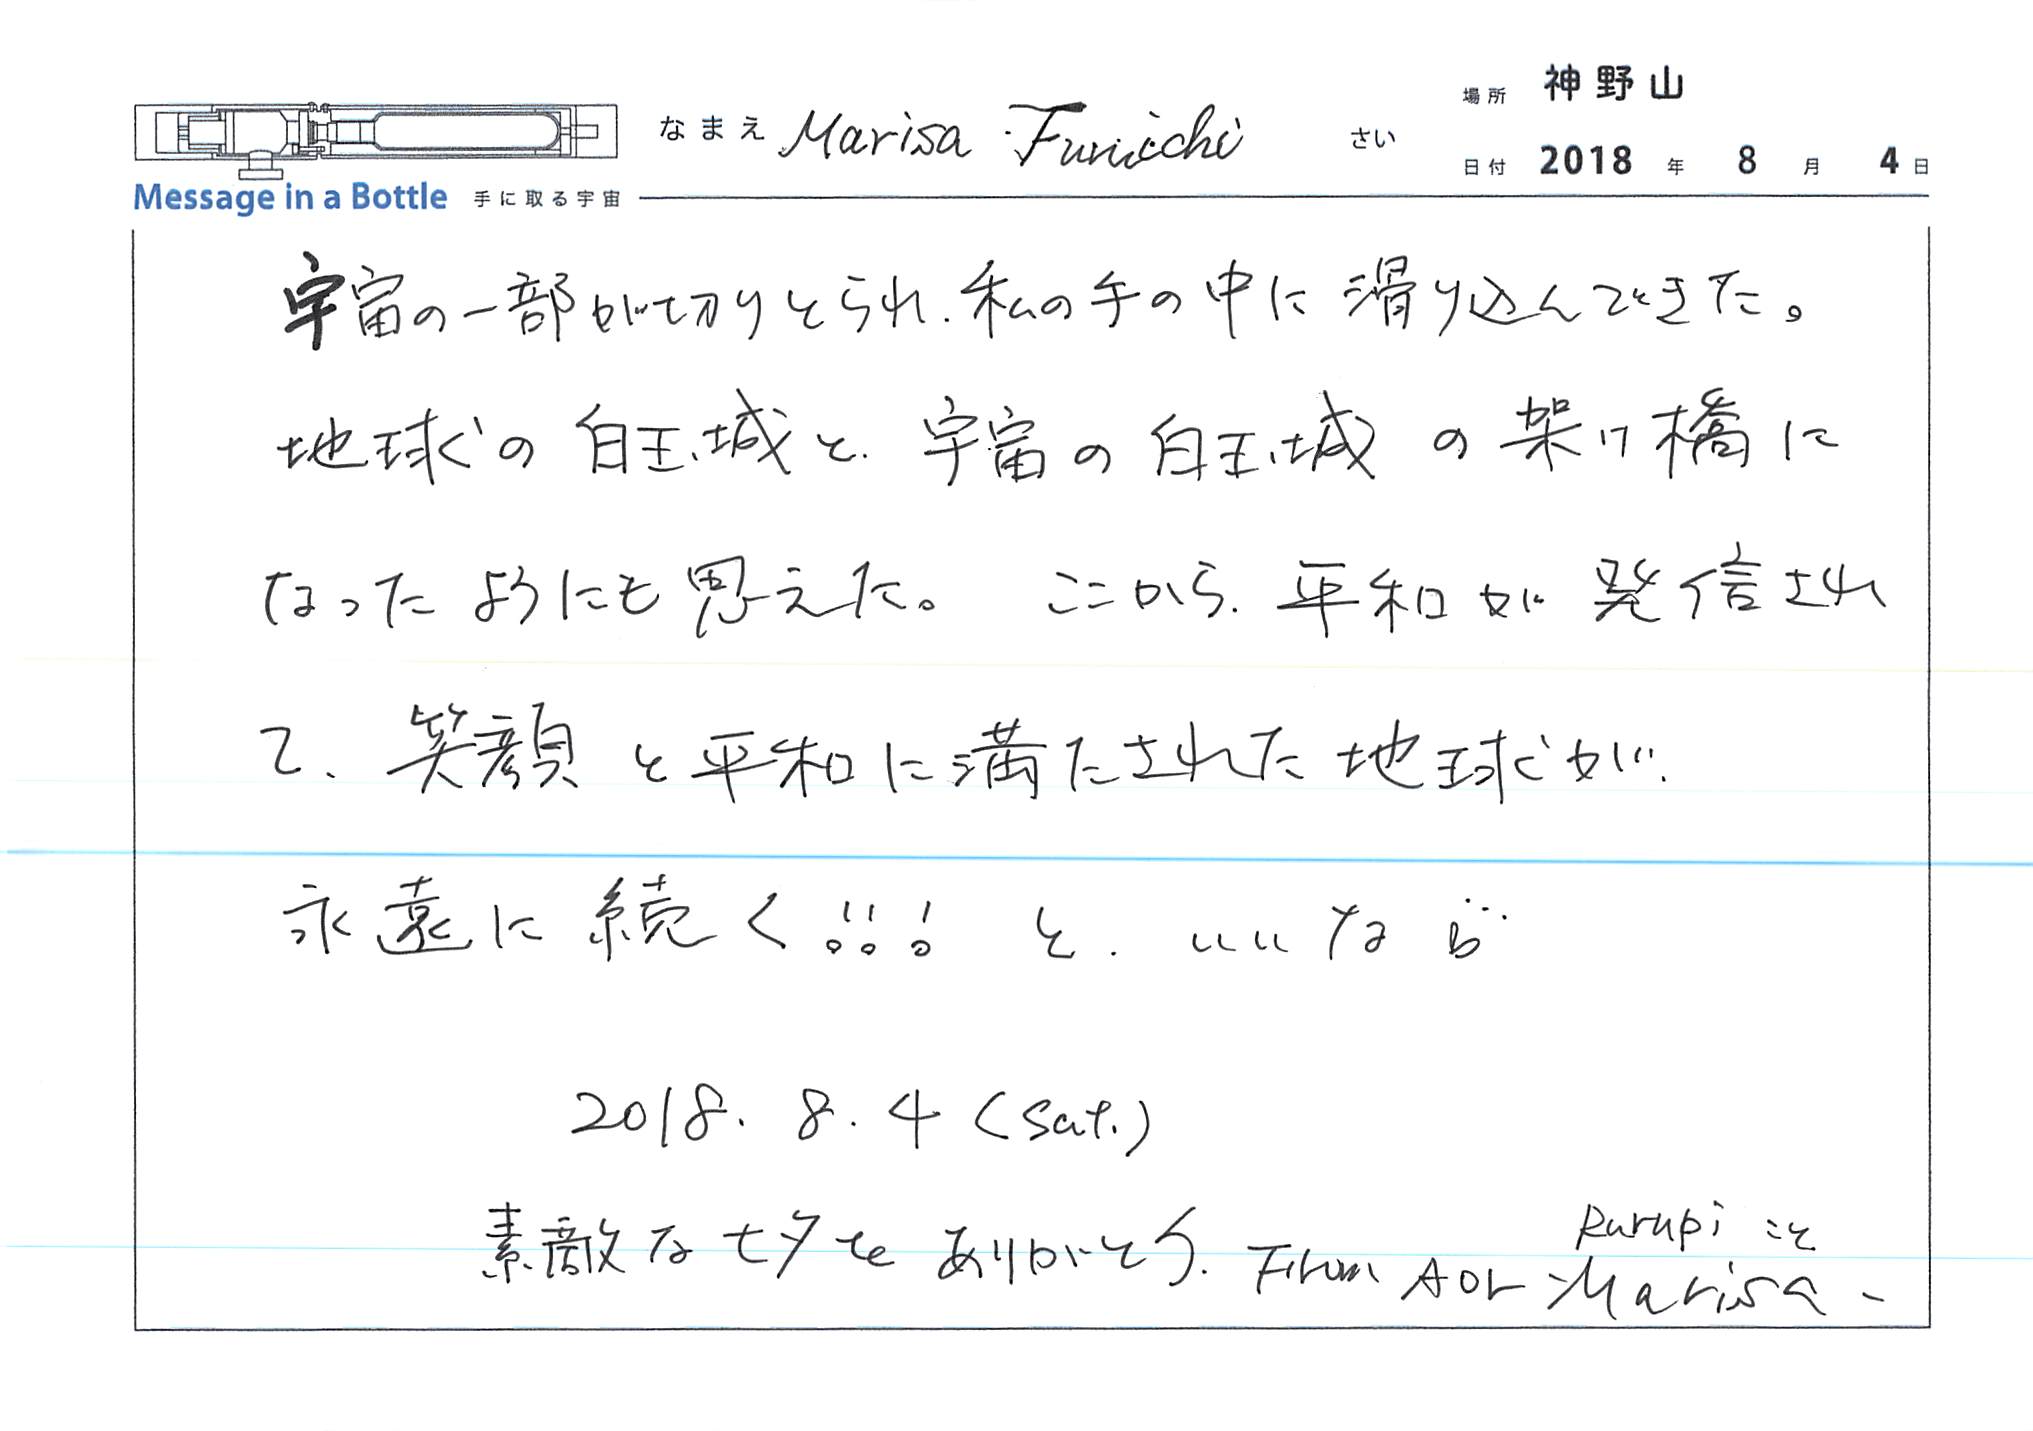 なまえ Marisa Furuichi さい 場所 神野山
日付 2018 年 8 月 4 日
Message in a Bottle 手に取る宇宙
宇宙の一部が切りとられ、私の手の中に滑り込んできた。
地球の白玉城と、宇宙の白玉城の架け橋に
なったようにも思えた。ここから、平和が発信され
て、笑顔と平和に満たされた地球が、
永遠に続く!!! と、いいなら…
2018. 8. 4 (Sat.)
素敵な七夕を ありがとう. From AOr Marisa
Rurupi こと